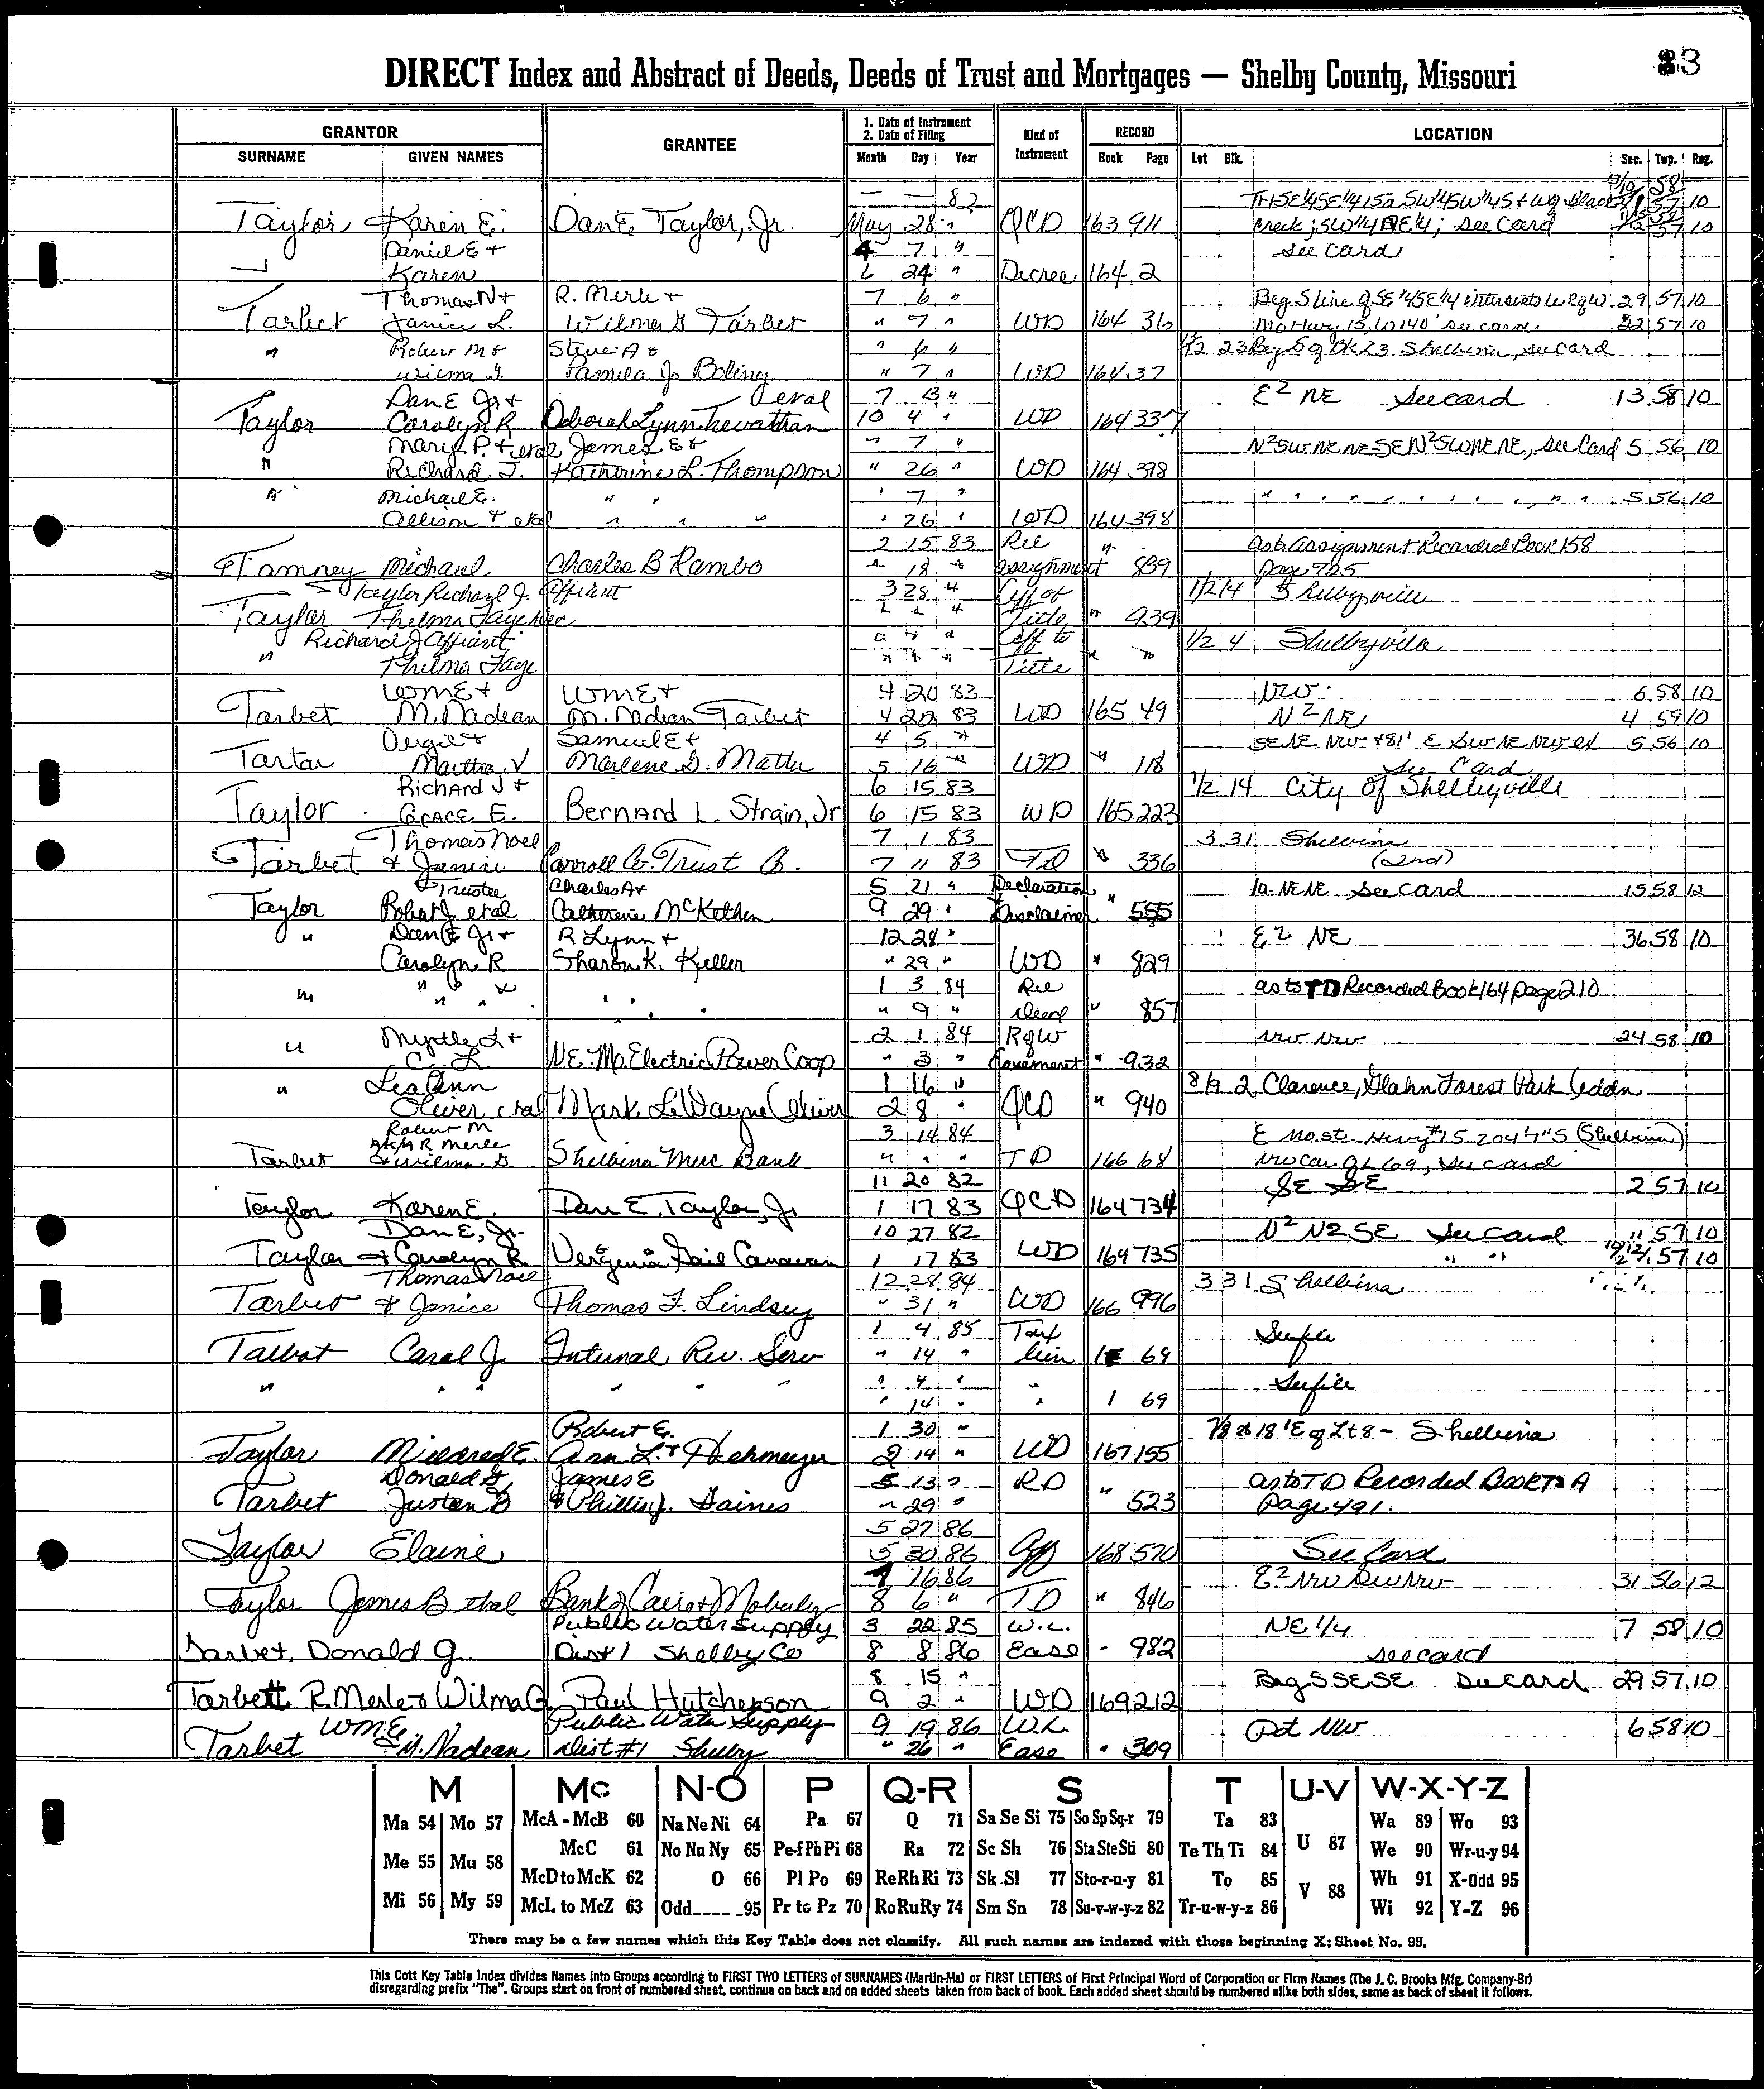 83
DIRECT Index and Abstract of Deeds, Deeds of Trust and Mortgages — Shelby County, Missouri
GRANTOR
GRANTEE
1. Date of Instrument
2. Date of Filing
Kind of Instrument
RECORD
LOCATION
SURNAME GIVEN NAMES
Month Day Year
Book Page
Lot Blk.
Sec. Twp. Rng.
— — 82
Taylor Karen E. Dan E. Taylor, Jr. May 28 " QCD 163 911 Creek; SW¼NE¼; See Card 57 10
Daniel E + 4 7 " See Card
Karen 6 24 " Decree 164 2
Thomas N + R. Merle + 7 6 " Beg S line of SE¼SE¼ intersects W RgW 29 57 10
Tarbet Janice L. Wilma G Tarbet " 7 " WD 164 36 Mo Hwy 15, W 140' see card 32 57 10
" Robert M + Steve A + " 6 " 1/2 23 Beg S of Bk 23 Shelbina, see card
Wilma G. Pamela Jo Boling " 7 " WD 164 37
Dan E Jr + et al 7 13 " E² NE See card 13 58 10
Taylor Carolyn R Deborah Lynn Trevathan 10 4 " WD 164 337
Mary P. + et al James E + " 7 " N²SW NE NE-SE N²SW NE NE, see Card 5 56 10
" Richard J. Katherine L. Thompson " 26 " WD 164 398
" Michael E. " " " 7 " " " " " " " " " " 5 56 10
Allison + etal " " " " 26 " WD 164 398
2 15 83 Rel " as to assignment Recorded Book 158
Tamney Michael Charles B Rambo " 18 " assignment 839 page 925
Taylor Richard J. Affiant 3 28 " Aff of 1/2 14 Shelbyville
Taylor Thelma Faye Dec " " " Title " 939
Richard J Affiant " " " Aff to 1/2 4 Shelbyville
" Thelma Faye " " " Title " "
WM E + WM E + 4 20 83 NW 6 58 10
Tarbet M. Nadean M. Nadean Tarbet 4 20 83 WD 165 49 N² NE 4 59 10
Virgil + Samuel E + 4 5 " SE NE NW + 81' E SW NE NW ex 5 56 10
Tartar Martha V Marlene G. Matlu 5 16 " WD " 118 See Card
Richard J + 6 15 83 1/2 14 City Of Shelbyville
Taylor Grace E. Bernard L Strain, Jr 6 15 83 WD 165 223
Thomas Noel 7 1 83 3 31 Shelbina
Tarbet + Janice Carroll Co. Trust Co. 7 11 83 TD " 336 (2nd)
Trustee Charles A + 5 21 " Declaration 1a NE NE See card 15 58 12
Taylor Robert J. et al Catherine McKethen 9 29 " Disclaimer " 555
" Dan E. Jr + R Lynn + 12 28 " E² NE 36 58 10
Carolyn R Sharon K. Keller " 29 " WD " 829
" " " " 1 3 84 Rel as to TD Recorded Book 164 page 210
" " " " " " 9 " Deed " 857
" Myrtle L + 2 1 84 RgW NW NW 24 58 10
C. L. N.E. Mo. Electric Power Coop " 3 " Easement " 932
" Lea Ann 1 16 " 8/9 2 Clarence, Glahn Forest Park Addn
Oliver etal Mark LeWayne Oliver 2 8 " QCD " 940
Robert M 3 14 84 E Mo St. Hwy #15 204'7"S (Shelbina)
AKA R Merle
Tarbet + Wilma G Shelbina Merc Bank " " " TD 166 68 NW Cor of L 69, see card
11 20 82 SE SE 2 57 10
Taylor Karen E. Dan E. Taylor, Jr 1 17 83 QCD 164 734
Dan E, Jr. 10 27 82 N² N2 SE See card 11 57 10
Taylor + Carolyn R Virginia Gail Canavan 1 17 83 WD 164 735 " " 57 10
Thomas Noel 12 28 84 3 31 Shelbina
Tarbet + Janice Thomas F. Lindsey " 31 " WD 166 996
1 4 85 Tax See file
Talbot Carol J. Internal Rev. Serv " 14 " Lien 1 69
" " " " " " " 4 " " See file
" 14 " " 1 69
Robert E. 1 30 " 7/8 18'E of Lt 8 - Shelbina
Taylor Mildred E. Ann L. + Hehmeyer 2 14 " WD 167 155
Donald G. James E 5 13 " RD as to TD Recorded Book TD A
Tarbet Justen B & Phillis J. Gaines " 29 " " 523 page 491.
5 27 86
Taylor Elaine 5 30 86 Aff 168 570 See Card
16 86 E² NW SW NW 31 56 12
Taylor James B etal Bank of Cairo + Moberly 8 6 " TD " 846
Public Water Supply 3 22 85 W.L. NE 1/4 7 58 10
Tarbet, Donald G. Dist 1 Shelby Co 8 8 86 Ease " 982 see card
8 15 " Beg S SE SE See Card 29 57 10
Tarbett R. Merle + Wilma G. Paul Hutcherson 9 2 " WD 169 212
WM E Public Water Supply 9 19 86 W.L. Pt NW 6 58 10
Tarbet + M. Nadean Dist #1 Shelby " 26 " Ease " 309
M Mc N-O P Q-R S T U-V W-X-Y-Z
Ma 54 Mo 57 McA - McB 60 Na Ne Ni 64 Pa 67 Q 71 Sa Se Si 75 So Sp Sq-r 79 Ta 83 U 87 Wa 89 Wo 93
Me 55 Mu 58 McC 61 No Nu Ny 65 Pe-f Ph Pi 68 Ra 72 Sc Sh 76 Sta Ste Sti 80 Te Th Ti 84 We 90 Wr-u-y 94
McD to McK 62 O 66 Pl Po 69 Re Rh Ri 73 Sk Sl 77 Sto-r-u-y 81 To 85 V 88 Wh 91 X-Odd 95
Mi 56 My 59 McL to McZ 63 Odd_____95 Pr to Pz 70 Ro Ru Ry 74 Sm Sn 78 Su-v-w-y-z 82 Tr-u-w-y-z 86 Wi 92 Y-Z 96
There may be a few names which this Key Table does not classify. All such names are indexed with those beginning X; Sheet No. 95.
This Cott Key Table Index divides Names into Groups according to FIRST TWO LETTERS of SURNAMES (Martin-Ma) or FIRST LETTERS of First Principal Word of Corporation or Firm Names (The J. C. Brooks Mfg. Company-Br)
disregarding prefix "The". Groups start on front of numbered sheet, continue on back and on added sheets taken from back of book. Each added sheet should be numbered alike both sides, same as back of sheet it follows.